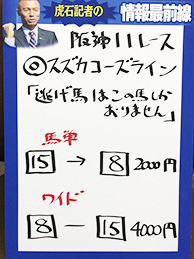 虎石記者の
情報最前線
阪神11レース
◎スズカコーズライン
「逃げ馬はこの馬しか
おりません」
馬単
15 → 8 2000円
ワイド
8 ー 15 4000円